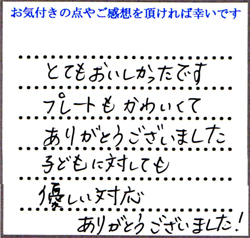 お気付きの点やご感想を頂ければ幸いです
とてもおいしかったです
プレートもかわいくて
ありがとうございました
子どもに対しても
優しい対応
ありがとうございました!